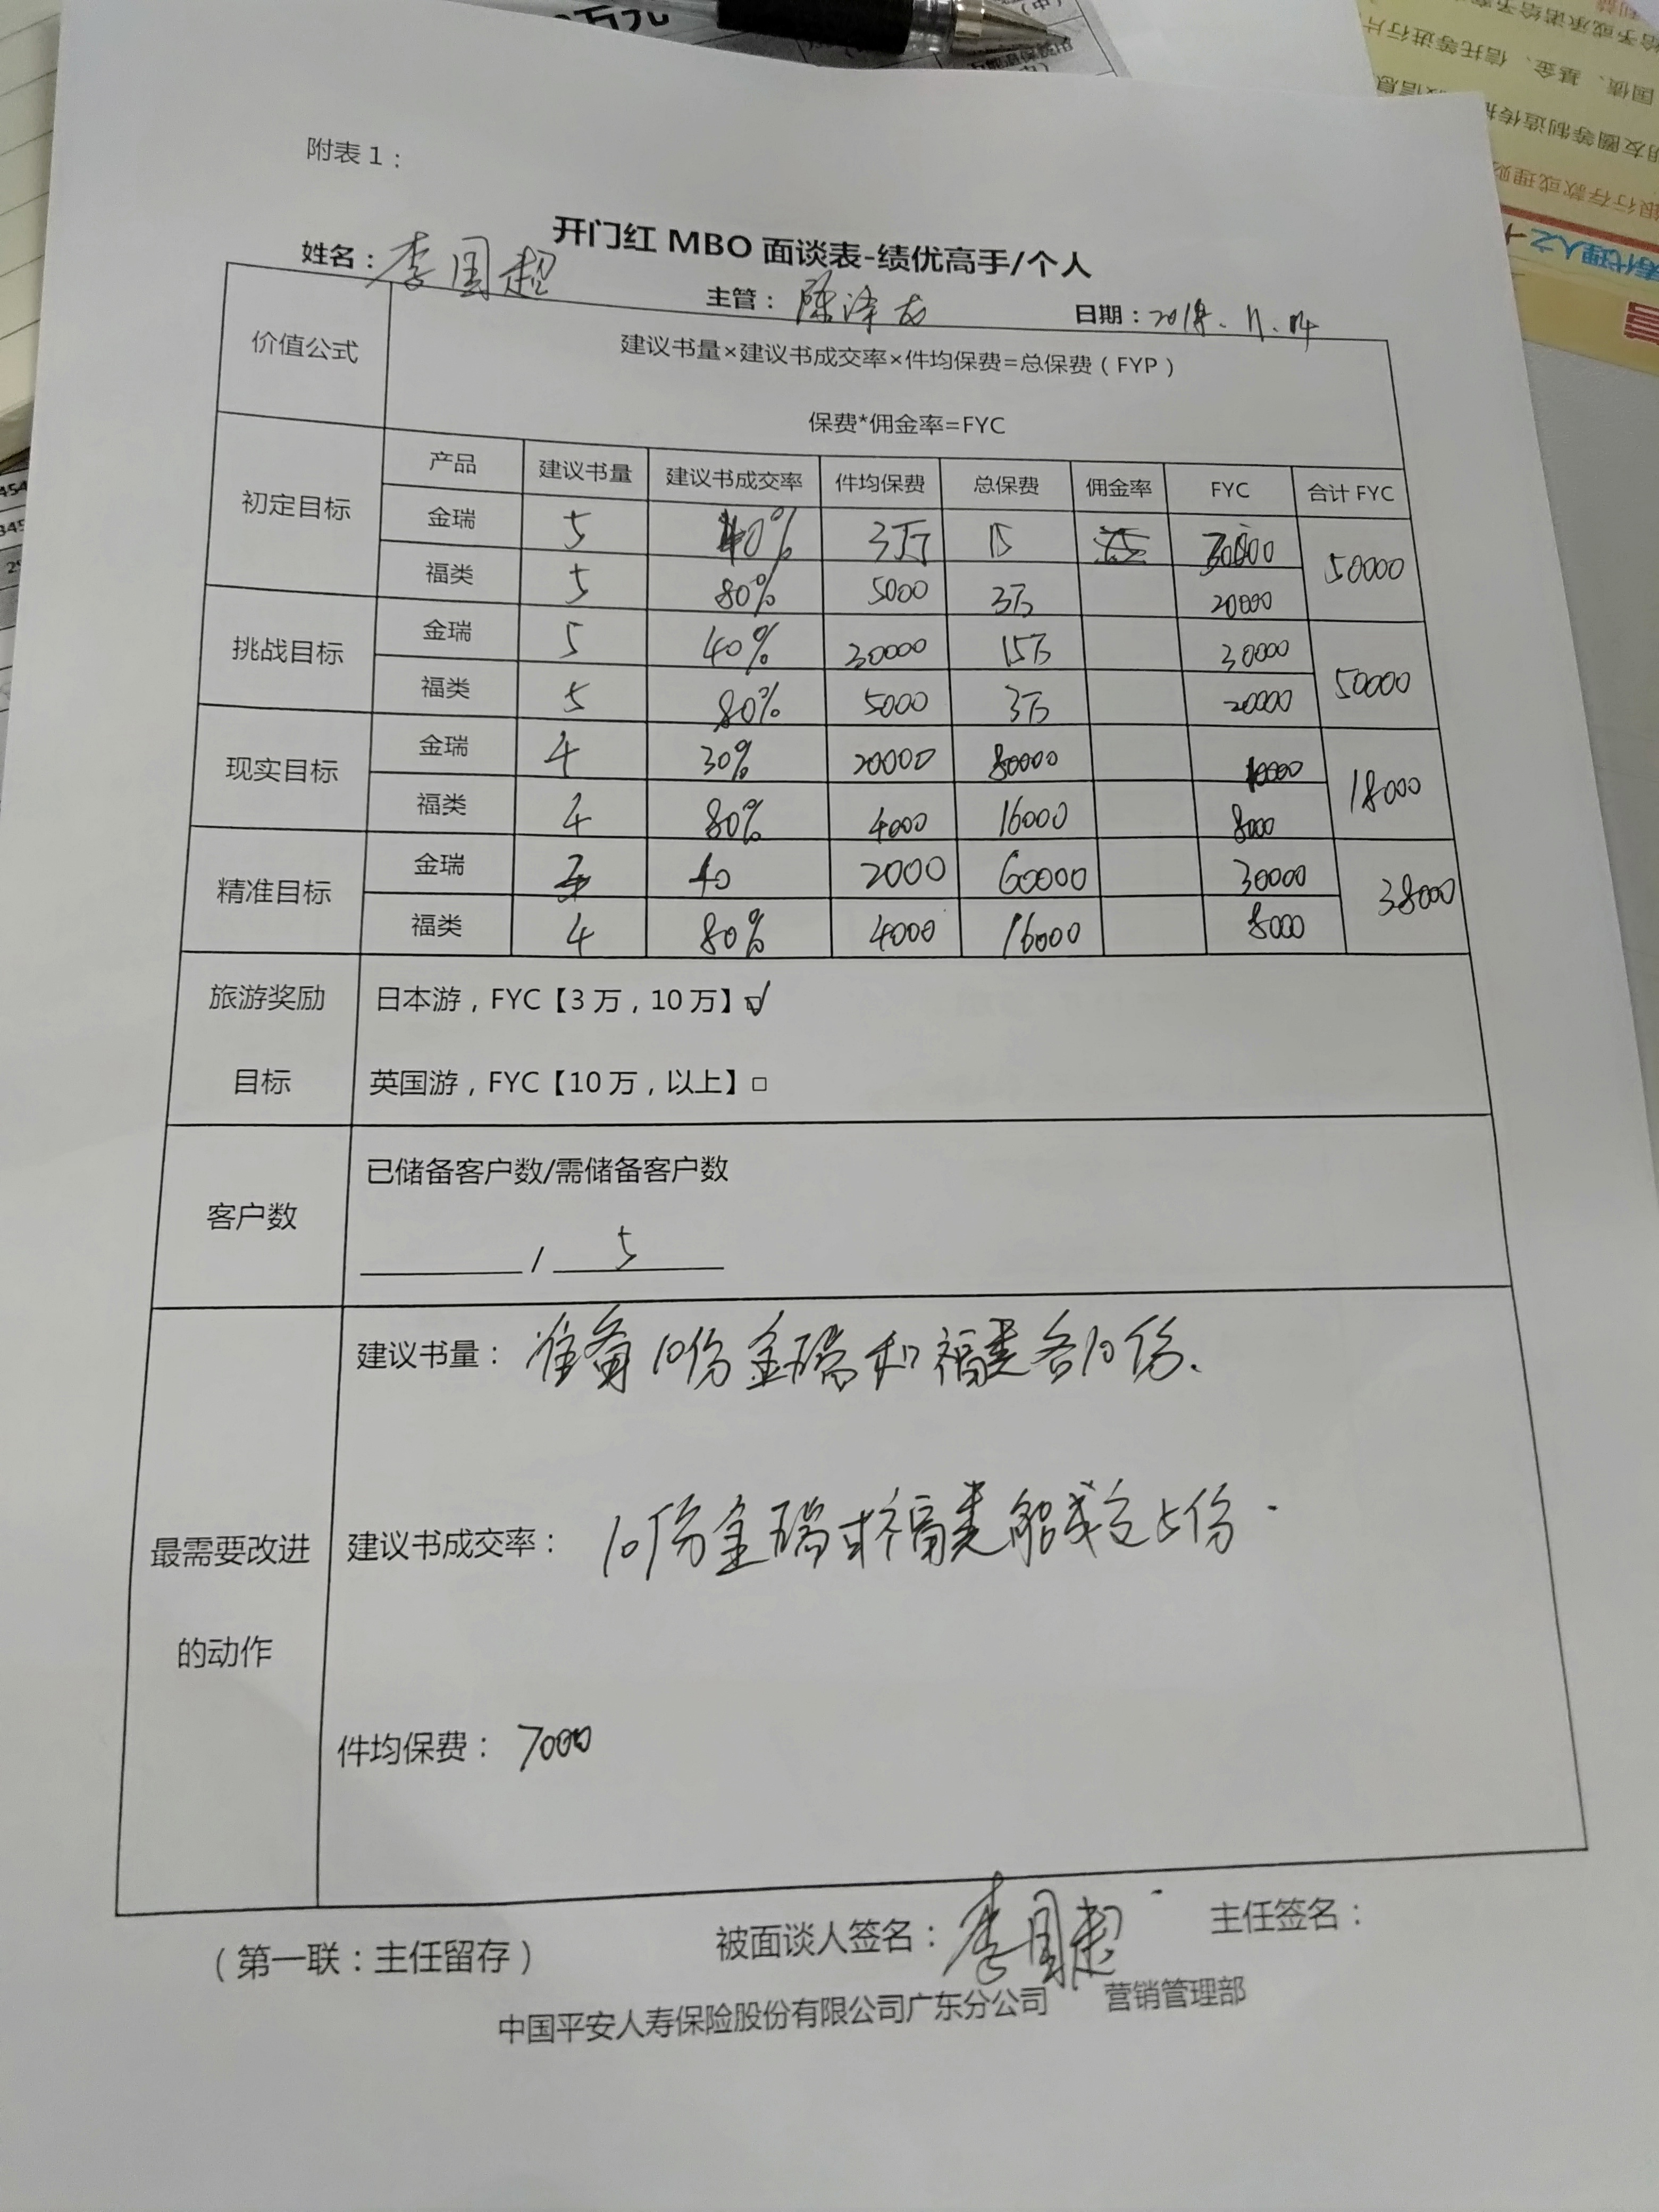 万元
附表 1：
开门红 MBO 面谈表-绩优高手/个人
姓名：李国超 主管：陈泽友 日期：2018.11.04
价值公式 建议书量×建议书成交率×件均保费=总保费（FYP）
保费*佣金率=FYC
初定目标 产品 建议书量 建议书成交率 件均保费 总保费 佣金率 FYC 合计 FYC
金瑞 5 40% 3万 15 30000 50000
福类 5 80% 5000 3万 20000
挑战目标 金瑞 5 40% 30000 15万 30000 50000
福类 5 80% 5000 3万 20000
现实目标 金瑞 4 30% 20000 80000 10000 18000
福类 4 80% 4000 16000 8000
精准目标 金瑞 40 2000 60000 30000 38000
福类 4 80% 4000 16000 8000
旅游奖励 日本游，FYC【3 万，10 万】☑
目标 英国游，FYC【10 万，以上】□
客户数 已储备客户数/需储备客户数
/ 5
建议书量：准备10份金瑞和福类各10份.
最需要改进 建议书成交率：10份金瑞或福类能成交5份.
的动作
件均保费：7000
（第一联：主任留存） 被面谈人签名：李国超 主任签名：
中国平安人寿保险股份有限公司广东分公司 营销管理部